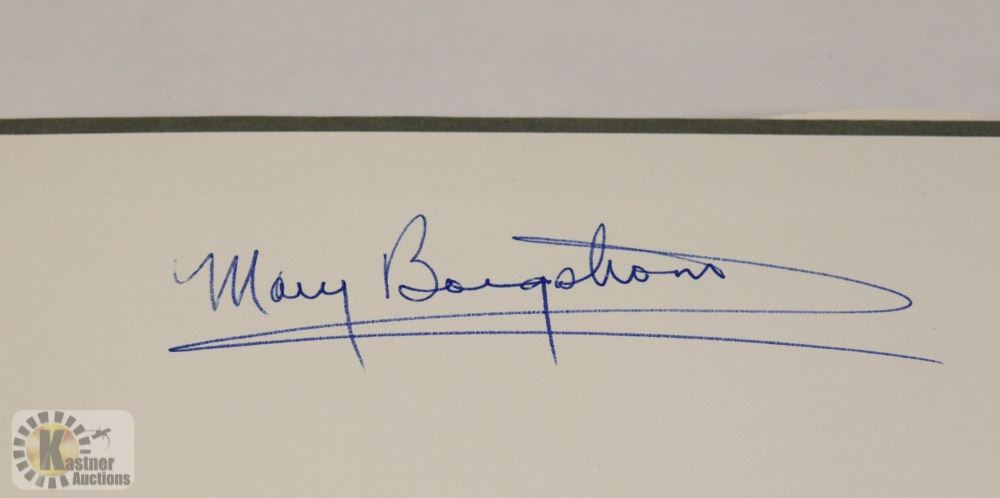 Mary Borgstrom
Kastner
Auctions